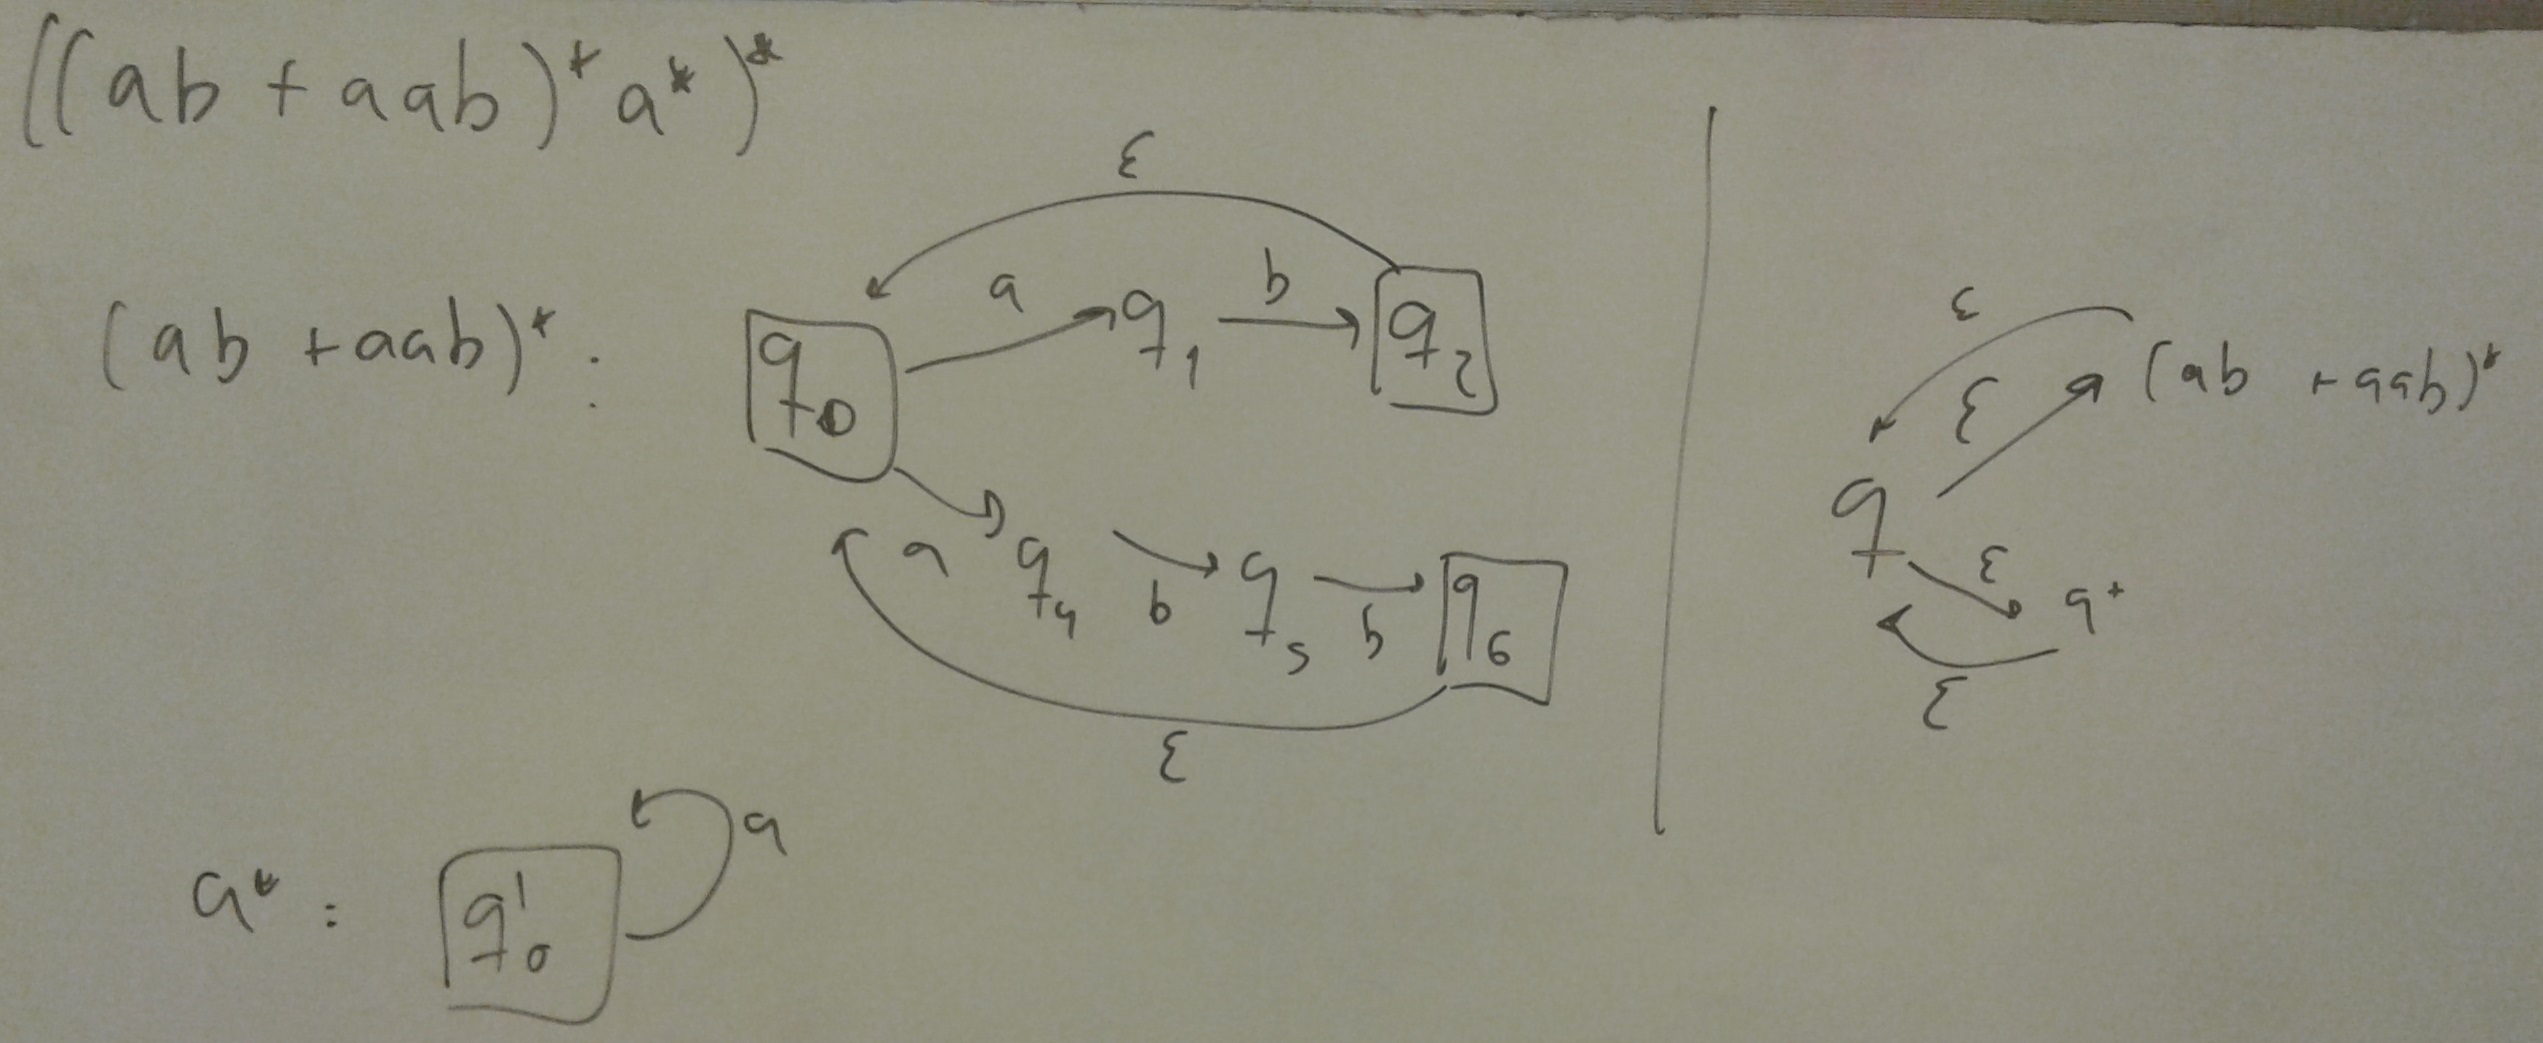 ((ab + aab)* a*)*
(ab + aab)* :
ε
q0 a q1 b q2
a q4 b q5 b q6
ε
a* : q'0 a
ε
ε (ab + aab)*
q
ε a*
ε